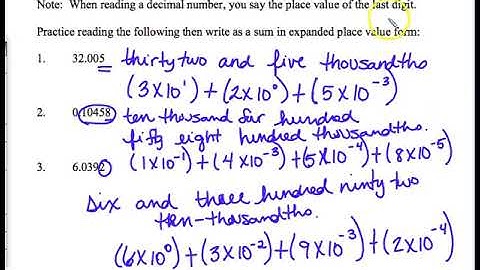 Note: When reading a decimal number, you say the place value of the last digit.
Practice reading the following then write as a sum in expanded place value form:
1. 32.005 thirty two and five thousandths
(3×10¹)+(2×10⁰)+(5×10⁻³)
2. 0.10458 ten thousand four hundred
fifty eight hundred thousandths.
(1×10⁻¹)+(4×10⁻³)+(5×10⁻⁴)+(8×10⁻⁵)
3. 6.0392
six and three hundred ninty two
ten-thousandths.
(6×10⁰)+(3×10⁻²)+(9×10⁻³)+(2×10⁻⁴)